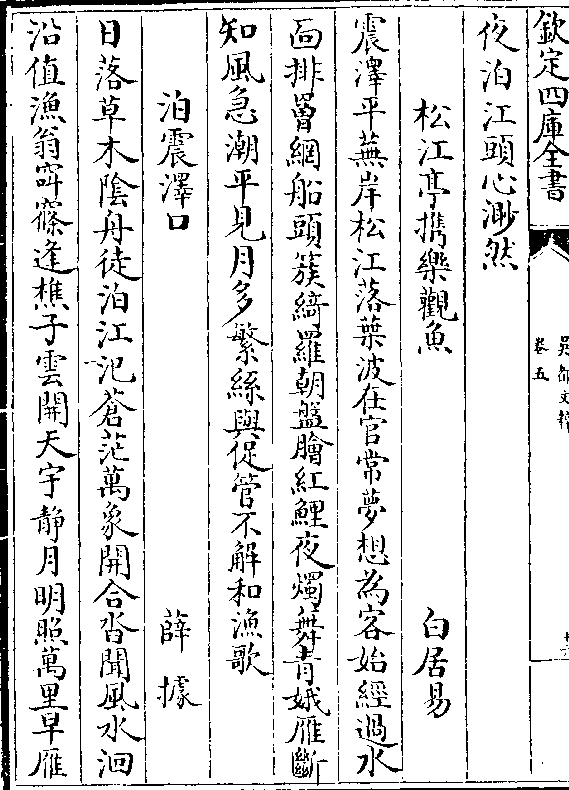 欽定四庫全書
吳都文粹
卷五
夜泊江頭心渺然
松江亭携樂觀魚 白居易
震澤平蕪岸松江落葉波在官常夢想為客始經過水
面排罾網船頭簇綺羅朝盤膾紅鯉夜燭舞青娥雁斷
知風急潮平見月多繁絲與促管不解和漁歌
泊震澤口 薛據
日落草木陰舟徒泊江汜蒼茫萬象開合沓聞風水洄
沿值漁翁窅窱逢樵子雲開天宇静月明照萬里早雁